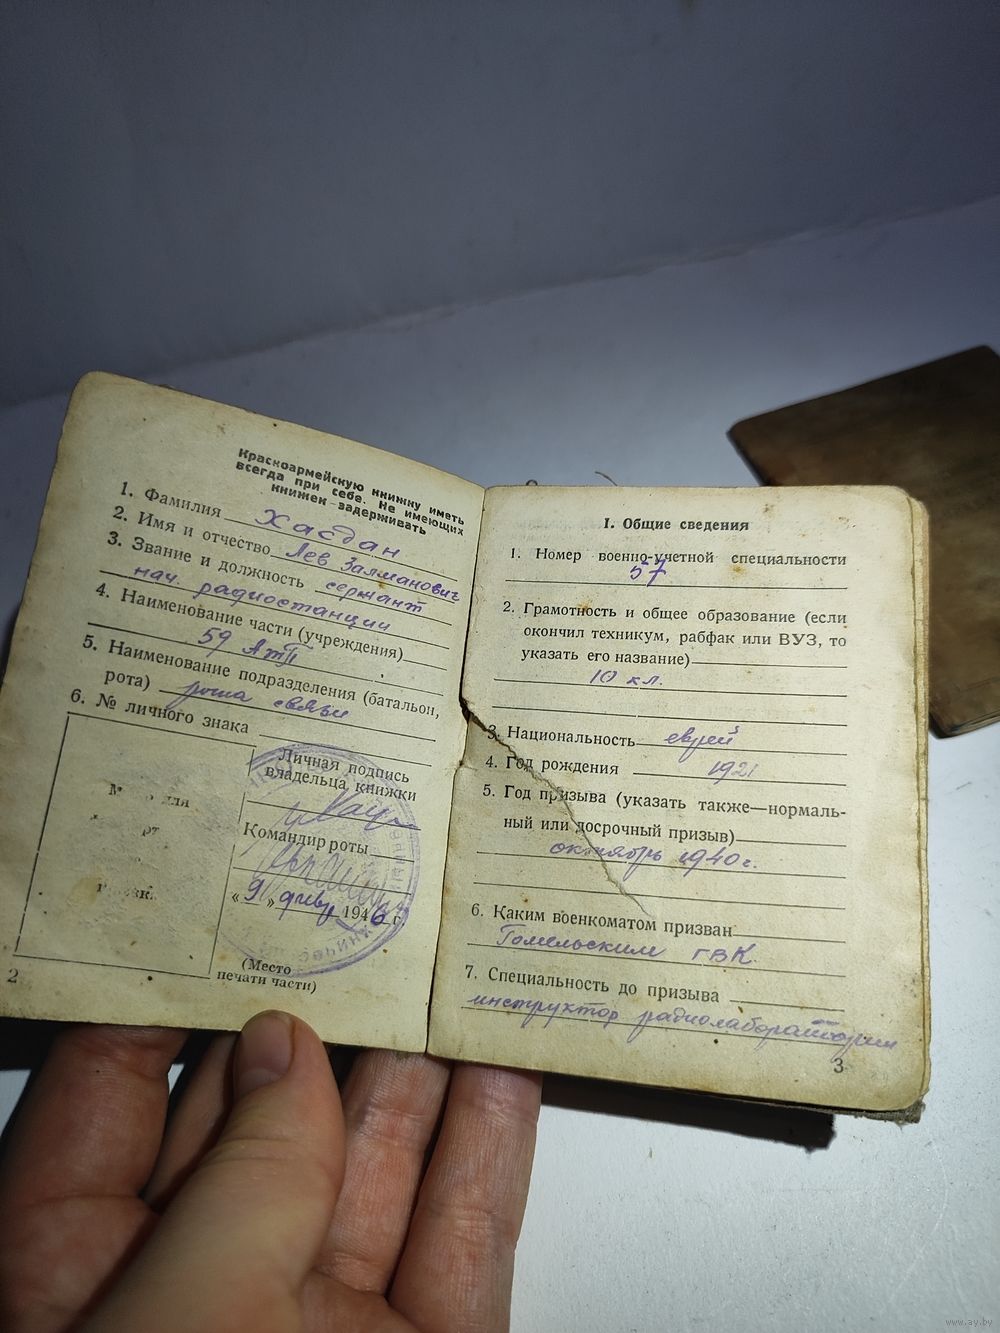 Красноармейскую книжку иметь
всегда при себе. Не имеющих
книжек задерживать
1. Фамилия Хасдан
2. Имя и отчество Лев Залманович
3. Звание и должность сержант
нач. радиостанции
4. Наименование части (учреждения)
59
5. Наименование подразделения (батальон,
рота) рота связи
6. № личного знака
Личная подпись
владельца книжки
Командир роты
«9» 1946 г.
(Место
печати части)
2
I. Общие сведения
1. Номер военно-учетной специальности
57
2. Грамотность и общее образование (если
окончил техникум, рабфак или ВУЗ, то
указать его название)
10 кл.
3. Национальность еврей
4. Год рождения 1921
5. Год призыва (указать также—нормаль-
ный или досрочный призыв)
октябрь 1940 г.
6. Каким военкоматом призван
Гомельским ГВК
7. Специальность до призыва
инструктор радиолаборатории
3
www.ay.by